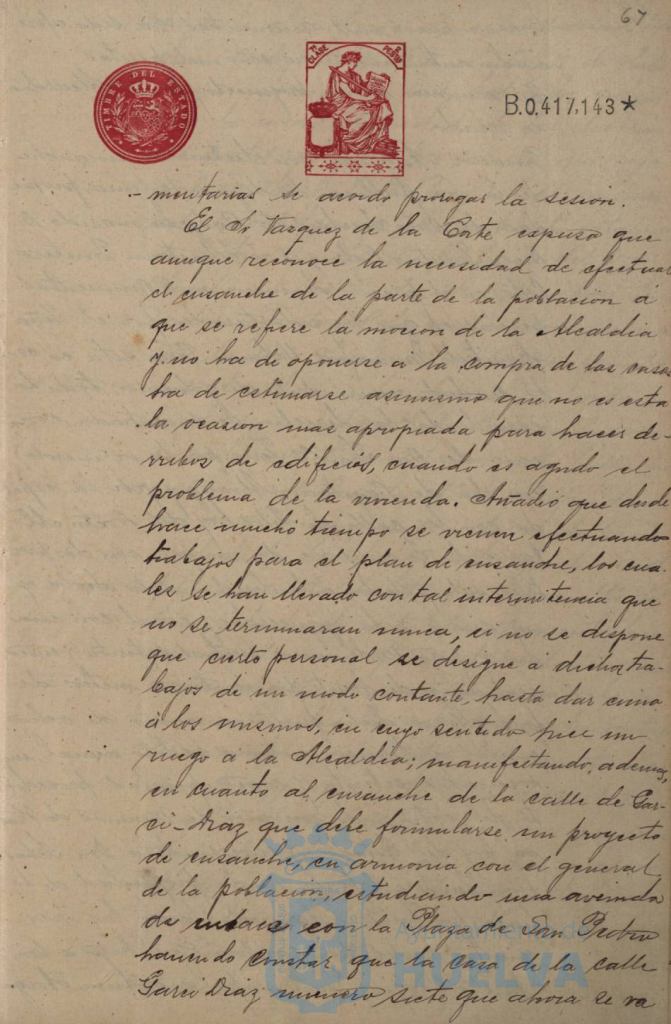 67
TIMBRE DEL ESTADO
7ª CLASE
PESETAS
B.0.417,143 *
- mentarias se acordo prorogar la sesión.
El Sr Vazquez de la Corte expuso que
aunque reconoce la necesidad de efectuar
el ensanche de la parte de la población á
que se refiere la mocion de la Alcaldia
y no ha de oponerse á la compra de las casas
ha de estimarse asimismo que no es esta
la ocasion mas apropiada para hacer de-
rribos de edificios, cuando es agudo el
problema de la vivienda. Añadió que desde
hace mucho tiempo se vienen efectuando
trabajos para el plan de ensanche, los cua-
les se han llevado con tal intermitencia que
no se terminaran nunca, si no se dispone
que cierto personal se designe á dichos tra-
bajos de un modo contante, hasta dar cima
á los mismos, en cuyo sentido hice un
ruego á la Alcaldia; manifestando, ademas,
en cuanto al ensanche de la calle de Gar-
ci-Diaz que debe formularse un proyecto
de ensanche, en armonia con el general
de la población, estudiando una avenida
de enlace con la Plaza de San Pedro
haciendo constar que la casa de la calle
Garci Diaz numero siete que ahora se va
Ayuntamiento de
HUELVA